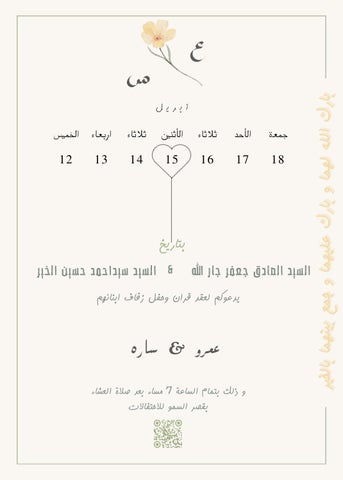 ع
س
ابريل
جمعة الأحد ثلاثاء الأثنين ثلاثاء اربعاء الخميس
18 17 16 15 14 13 12
بتاريخ
السيد الصادق جعفر جار الله & السيد سيداحمد حسين الخير
يدعوكم لعقد قران وحفل زفاف ابنائهم
عمرو & ساره
و ذلك بتمام الساعة 7 مساء بعد صلاة العشاء
بقصر السمو للاحتفالات
بارك الله لهما و بارك عليهما و جمع بينهما بالخير